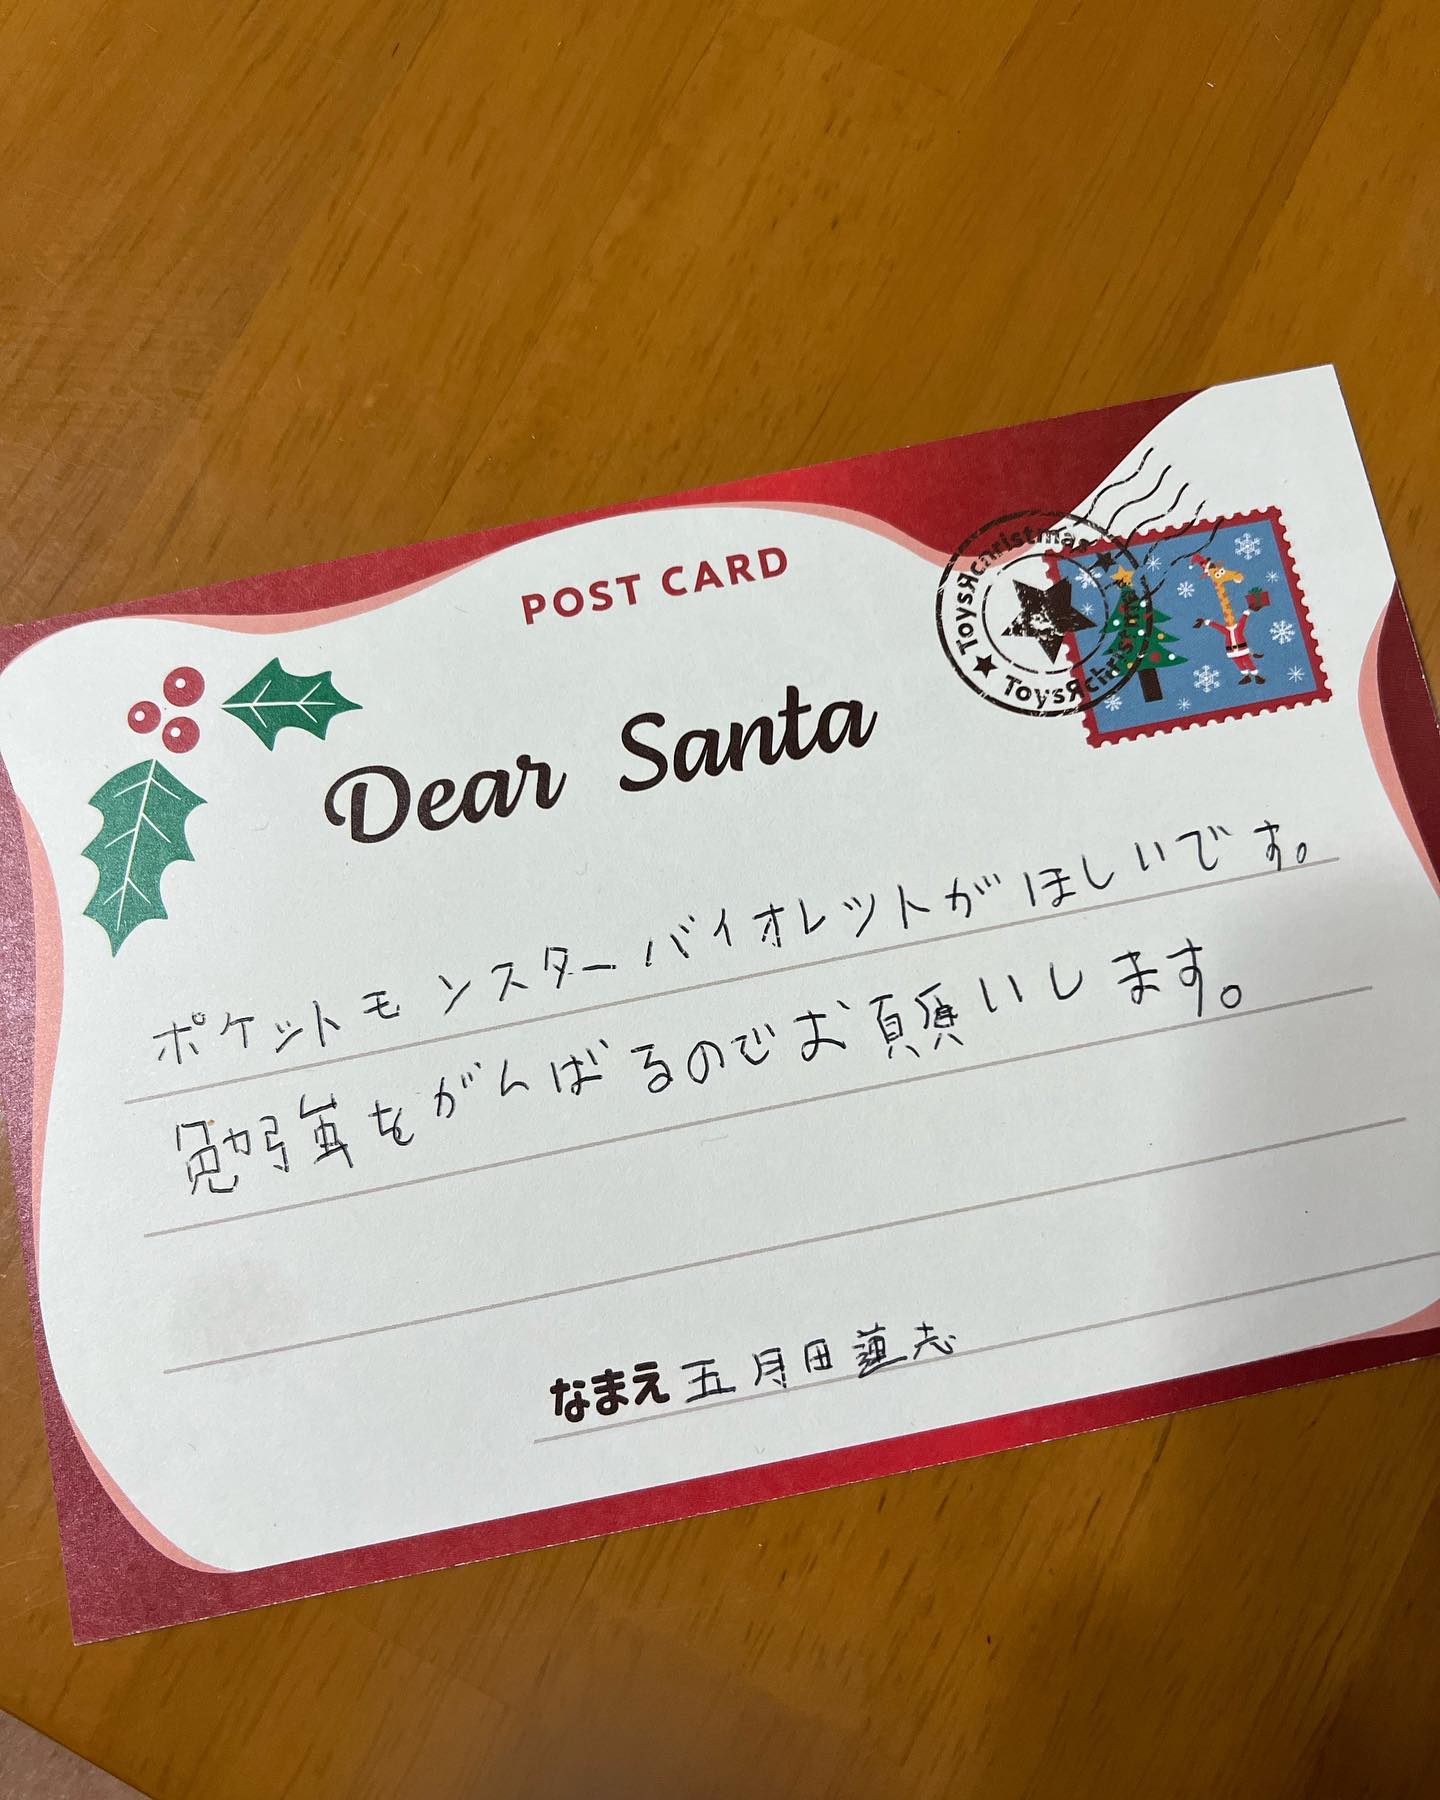 POST CARD
ToysЯchristmas
ToysЯchristmas
Dear Santa
ポケットモンスターバイオレットがほしいです。
勉強をがんばるのでお願いします。
なまえ 五月田蓮志